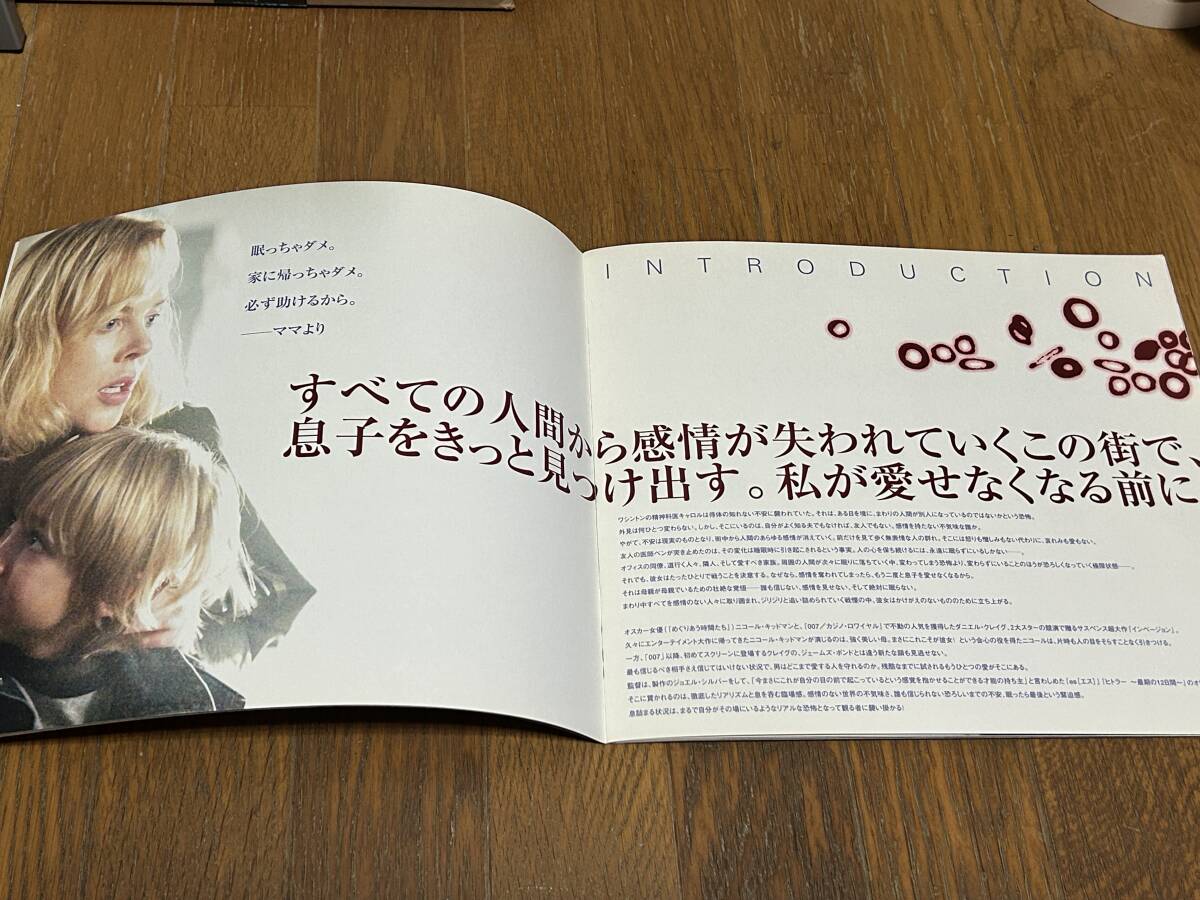 眠っちゃダメ。
家に帰っちゃダメ。
必ず助けるから。
——ママより
INTRODUCTION
すべての人間から感情が失われていくこの街で、
息子をきっと見つけ出す。私が愛せなくなる前に
ワシントンの精神科医キャロルは得体の知れない不安に襲われていた。それは、ある日を境に、まわりの人間が別人になっているのではないかという恐怖。
外見は何ひとつ変わらない。しかし、そこにいるのは、自分がよく知る夫でもなければ、友人でもない。感情を持たない不気味な誰か。
やがて、不安は現実のものとなり、街中から人間のあらゆる感情が消えていく。前だけを見て歩く無表情な人の群れ。そこには怒りも憎しみもない代わりに、哀れみも愛もない。
友人の医師ベンが突き止めたのは、その変化は睡眠時に引き起こされるという事実。人の心を保ち続けるには、永遠に眠らずにいるしかない——。
オフィスの同僚、道行く人々、隣人、そして愛すべき家族。周囲の人間が次々に眠りに落ちていく中、変わってしまう恐怖より、変わらずにいることのほうが恐ろしくなっていく極限状態——。
それでも、彼女はたったひとりで戦うことを決意する。なぜなら、感情を奪われてしまったら、もう二度と息子を愛せなくなるから。
それは母親が母親でいるための壮絶な覚悟——誰も信じない、感情を見せない、そして絶対に眠らない。
まわり中すべてを感情のない人々に取り囲まれ、ジリジリと追い詰められていく戦慄の中、彼女はかけがえのないもののために立ち上がる。
オスカー女優(『めぐりあう時間たち』)ニコール・キッドマンと、『007／カジノ・ロワイヤル』で不動の人気を獲得したダニエル・クレイグ、2大スターの競演で贈るサスペンス超大作『インベージョン』。
久々にエンターテイメント大作に帰ってきたニコール・キッドマンが演じるのは、強く美しい母。まさにこれこそが彼女！という会心の役を得たニコールは、片時も人の目をそらすことなく引きつける。
一方、『007』以降、初めてスクリーンに登場するクレイグの、ジェームズ・ボンドとは違う新たな顔も見逃せない。
最も信じるべき相手さえ信じてはいけない状況で、男はどこまで愛する人を守れるのか。残酷なまでに試されるもうひとつの愛がそこにある。
監督は、製作のジョエル・シルバーをして、「今まさにこれが自分の目の前で起こっているという感覚を抱かせることができる才能の持ち主」と言わしめた『es[エス]』『ヒトラー ～最期の12日間～』のオ
そこに貫かれるのは、徹底したリアリズムと息を呑む臨場感。感情のない世界の不気味さ、誰も信じられない恐ろしいまでの不安、眠ったら最後という緊迫感。
息詰まる状況は、まるで自分がその場にいるようなリアルな恐怖となって観る者に襲い掛かる！